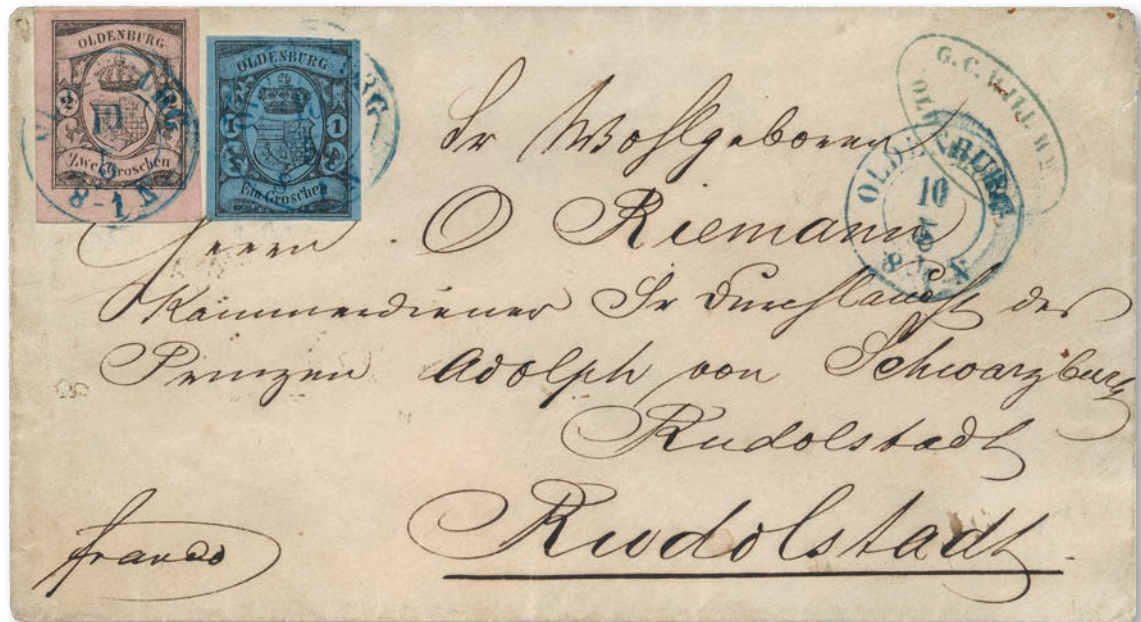 OLDENBURG
2
Zwei Groschen
OLDENBURG
1 1
Ein Groschen
G. C. WILL. WE
OLDENBURG
OLDENBURG
10
8-1 N
Sr Wohlgeboren
Herrn O Riemann
Kammerdiener Sr Durchlaucht des
Prinzen Adolph von Schwarzburg
Rudolstadt
Rudolstadt
franco